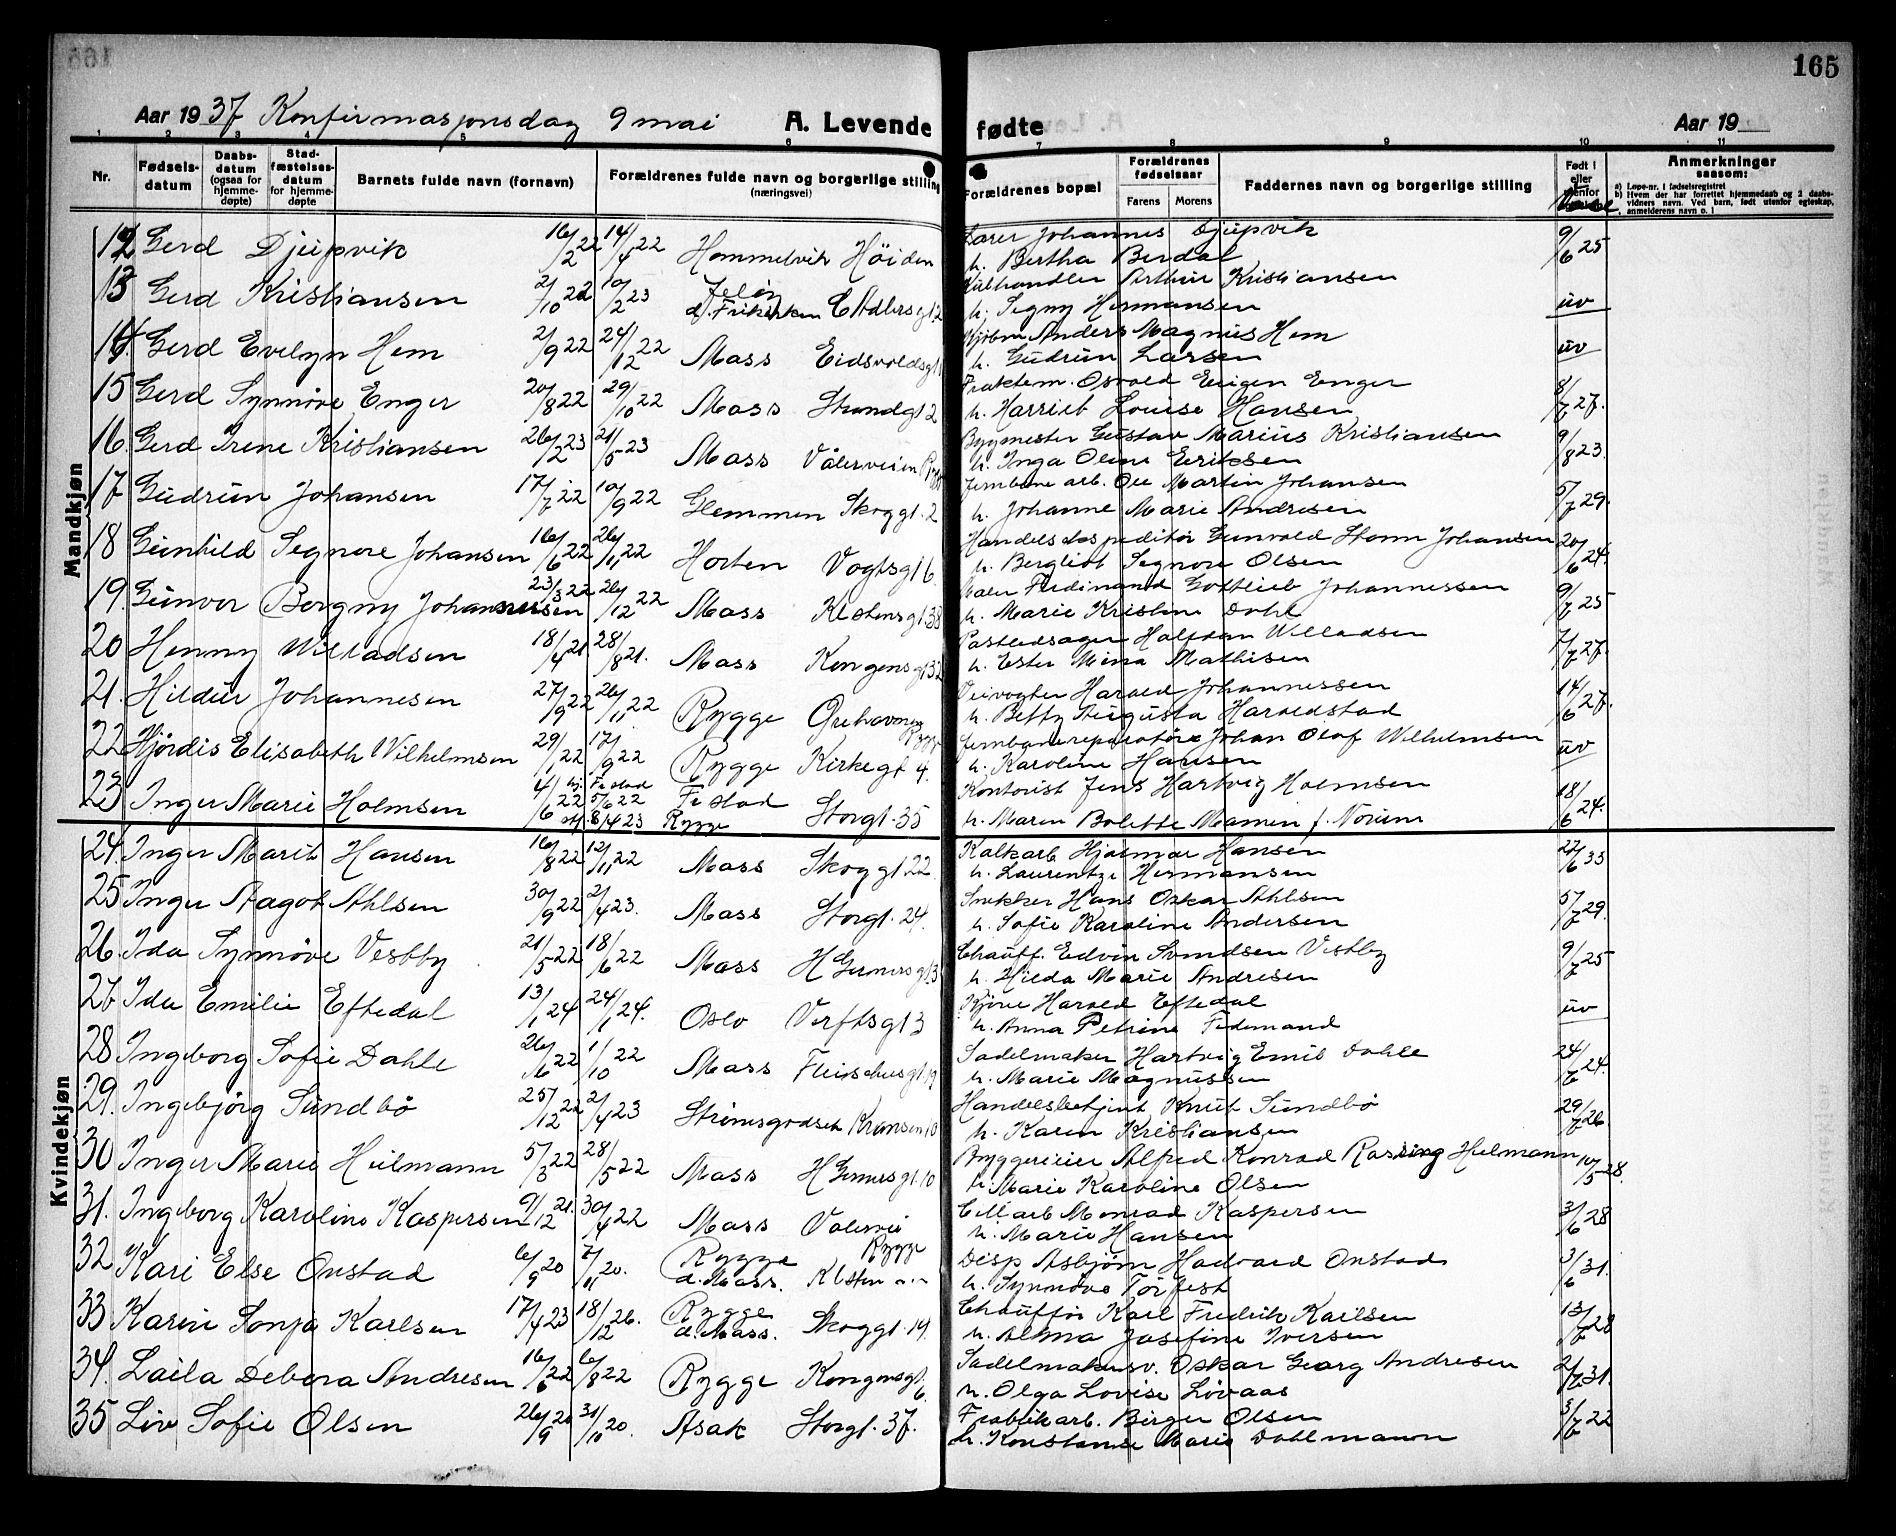 165
Aar 1937 Konfirmasjonsdag 9 mai A. Levende fødte Aar 19
1 2 3 4 5 6 7 8 9 10 11
Nr. Fødsels-datum Daabs-datum (ogsaa for hjemme-døpte) Stad-fæstelses-datum for hjemme-døpte Barnets fulde navn (fornavn) Forældrenes fulde navn og borgerlige stilling (næringsvei) Forældrenes bopæl Forældrenes fødselsaar Farens Morens Faddernes navn og borgerlige stilling Født i eller utenfor Anmerkninger saasom:
a) Løpe-nr. i fødselsregistret
b) Hvem der har forrettet hjemmedaab og 2 daabs-vidners navn. Ved barn, født utenfor egteskap, anmelderens navn o. l
Mandkjøn
12 Gerd Djupvik 16/2 22 14/4 22 Hommelvik Höiden Lærer Johannes Djupvik 9/6 25
h. Bertha Berdal
13 Gerd Kristiansen 2/10 22 10/2 23 Jeløy d. Frikirken C Adlersgt 2 Kulhandler Arthur Kristiansen uv
h. Segny Hermansen
14. Gerd Evelyn Hem 2/9 22 24/12 22 Moss Eidsvoldsgt Anders Magnus Hem uv
h. Gudrun Larsen
15 Gerd Synnöve Enger 20/8 22 29/10 22 Moss Strandgt 2 Fraktem. Osvald Eugen Enger 8/7 27.
h. Harriet Louise Hansen
16. Gerd Irene Kristiansen 26/2 23 21/5 23 Moss Vålerveien Rygge Bygmester Gustav Marius Kristiansen 9/8 23.
h. Inga Oline Eriksen
17 Gudrun Johansen 17/7 22 10/9 22 Glemmen Skoggt. 2 Jernbane arb. Ole Martin Johansen 5/7 29.
h. Johanne Marie Andresen
18 Gunhild Segnore Johansen 16/6 22 26/11 22 Horten Vogtsgt 6 Handelsekspeditør Gunvald Storm Johansen 20/6 24.
h. Bergliot Segnore Olsen
19. Gunvor Borgny Johannessen 23/3 22 26/12 22 Moss Klostersgt. 38 Maler Ferdinand Gottlieb Johannessen 9/7 25
h. Marie Kristine Dahl
20 Henny Willadsen 18/4 21 28/8 21. Moss Kongensgt 32 Halfdan Willadsen 7/7 27.
h. Ester Mina Mathisen
21. Hildur Johannesen 27/9 22 26/11 22 Rygge Orehavnen Rygge Veivogter Harald Johannessen 14/6 27.
h. Betty Augusta Haraldstad
22 Hjördis Elisabeth Wilhelmsen 29/1 22 17/9 22 Rygge Kirkegt 4. Jernbanereparatör Johan Olaf Wilhelmsen uv
h. Karoline Hansen
23 Inger Marie Holmsen 4/6 22 hj. 5/6 22 st. 8/4 23 Festad Rygge Storgt. 35 Kontorist Jens Hartvig Holmsen 18/6 24.
h. Maren Bolette Mamen f. Norum
Kvindekjøn
24. Inger Marit Hansen 16/8 22 12/11 22 Moss Skoggt 22. Kalkarb Hjalmar Hansen 22/6 33
h. Laurentze Hermansen
25 Inger Aagot Ahlsen 30/9 22 2/4 23. Moss Storgt. 24. Snekker Hans Oskar Ahlsen 5/7 29.
h. Sofie Karoline Andersen
26 Ida Synnöve Vestby 21/5 22 18/6 22 Moss H Gernersgt 3 Chauff. Edvin Svendsen Vestby 9/7 25
h. Hilda Marie Andresen
27 Ida Emilie Eftedal 13/1 24 24/1 24. Oslo Verftsgt 3 Harald Eftedal uv
h. Anna Petrine
28 Ingeborg Sofie Dahle 26/6 22 1/10 22 Moss Fleischersgt 19 Sadelmaker Hartvig Emil Dahle 24/6 24.
h. Marie Magnussen
29. Ingebjörg Sundbö 25/12 22 2/4 23 Strömsgodset Kransen 10 Handelsbetjent Knut Sundbö 29/7 26.
h. Karen Kristiansen
30 Inger Marie Heilmann 5/3 22 28/5 22 Moss H Gernersgt 10 Byggereier Alfred Konrad Heilmann 10/5 28.
h. Marie Karoline Olsen
31. Ingeborg Karoline Kaspersen 9/12 21. 30/4 22 Moss Vålervei Rygge Cell arb Monrad Kaspersen 3/6 28
h. Marie Hansen
32 Kari Else Onstad 6/9 20 7/11 20. Rygge d. Moss. Disp Asbjörn Hadvard Onstad 3/6 31.
h. Synnöve
33 Karin Sonja Karlsen 17/4 23 18/12 26. Rygge d. Moss. Skoggt. 19. Chauffør Karl Fredrik Karlsen 13/6 28
h. Alma Josefine Iversen
34. Laila Debora Andresen 16/6 22 6/8 22 Rygge Kongensgt. 6. Sadelmakersv. Oskar Georg Andresen 2/7 31.
h. Olga Lovise Lövaas
35 Liv Sofie Olsen 26/9 20 31/10 20. Asak Storgt. 37. Fabrikarb. Birger Olsen 3/7 22
h. Konstanse Marie Dahlmann